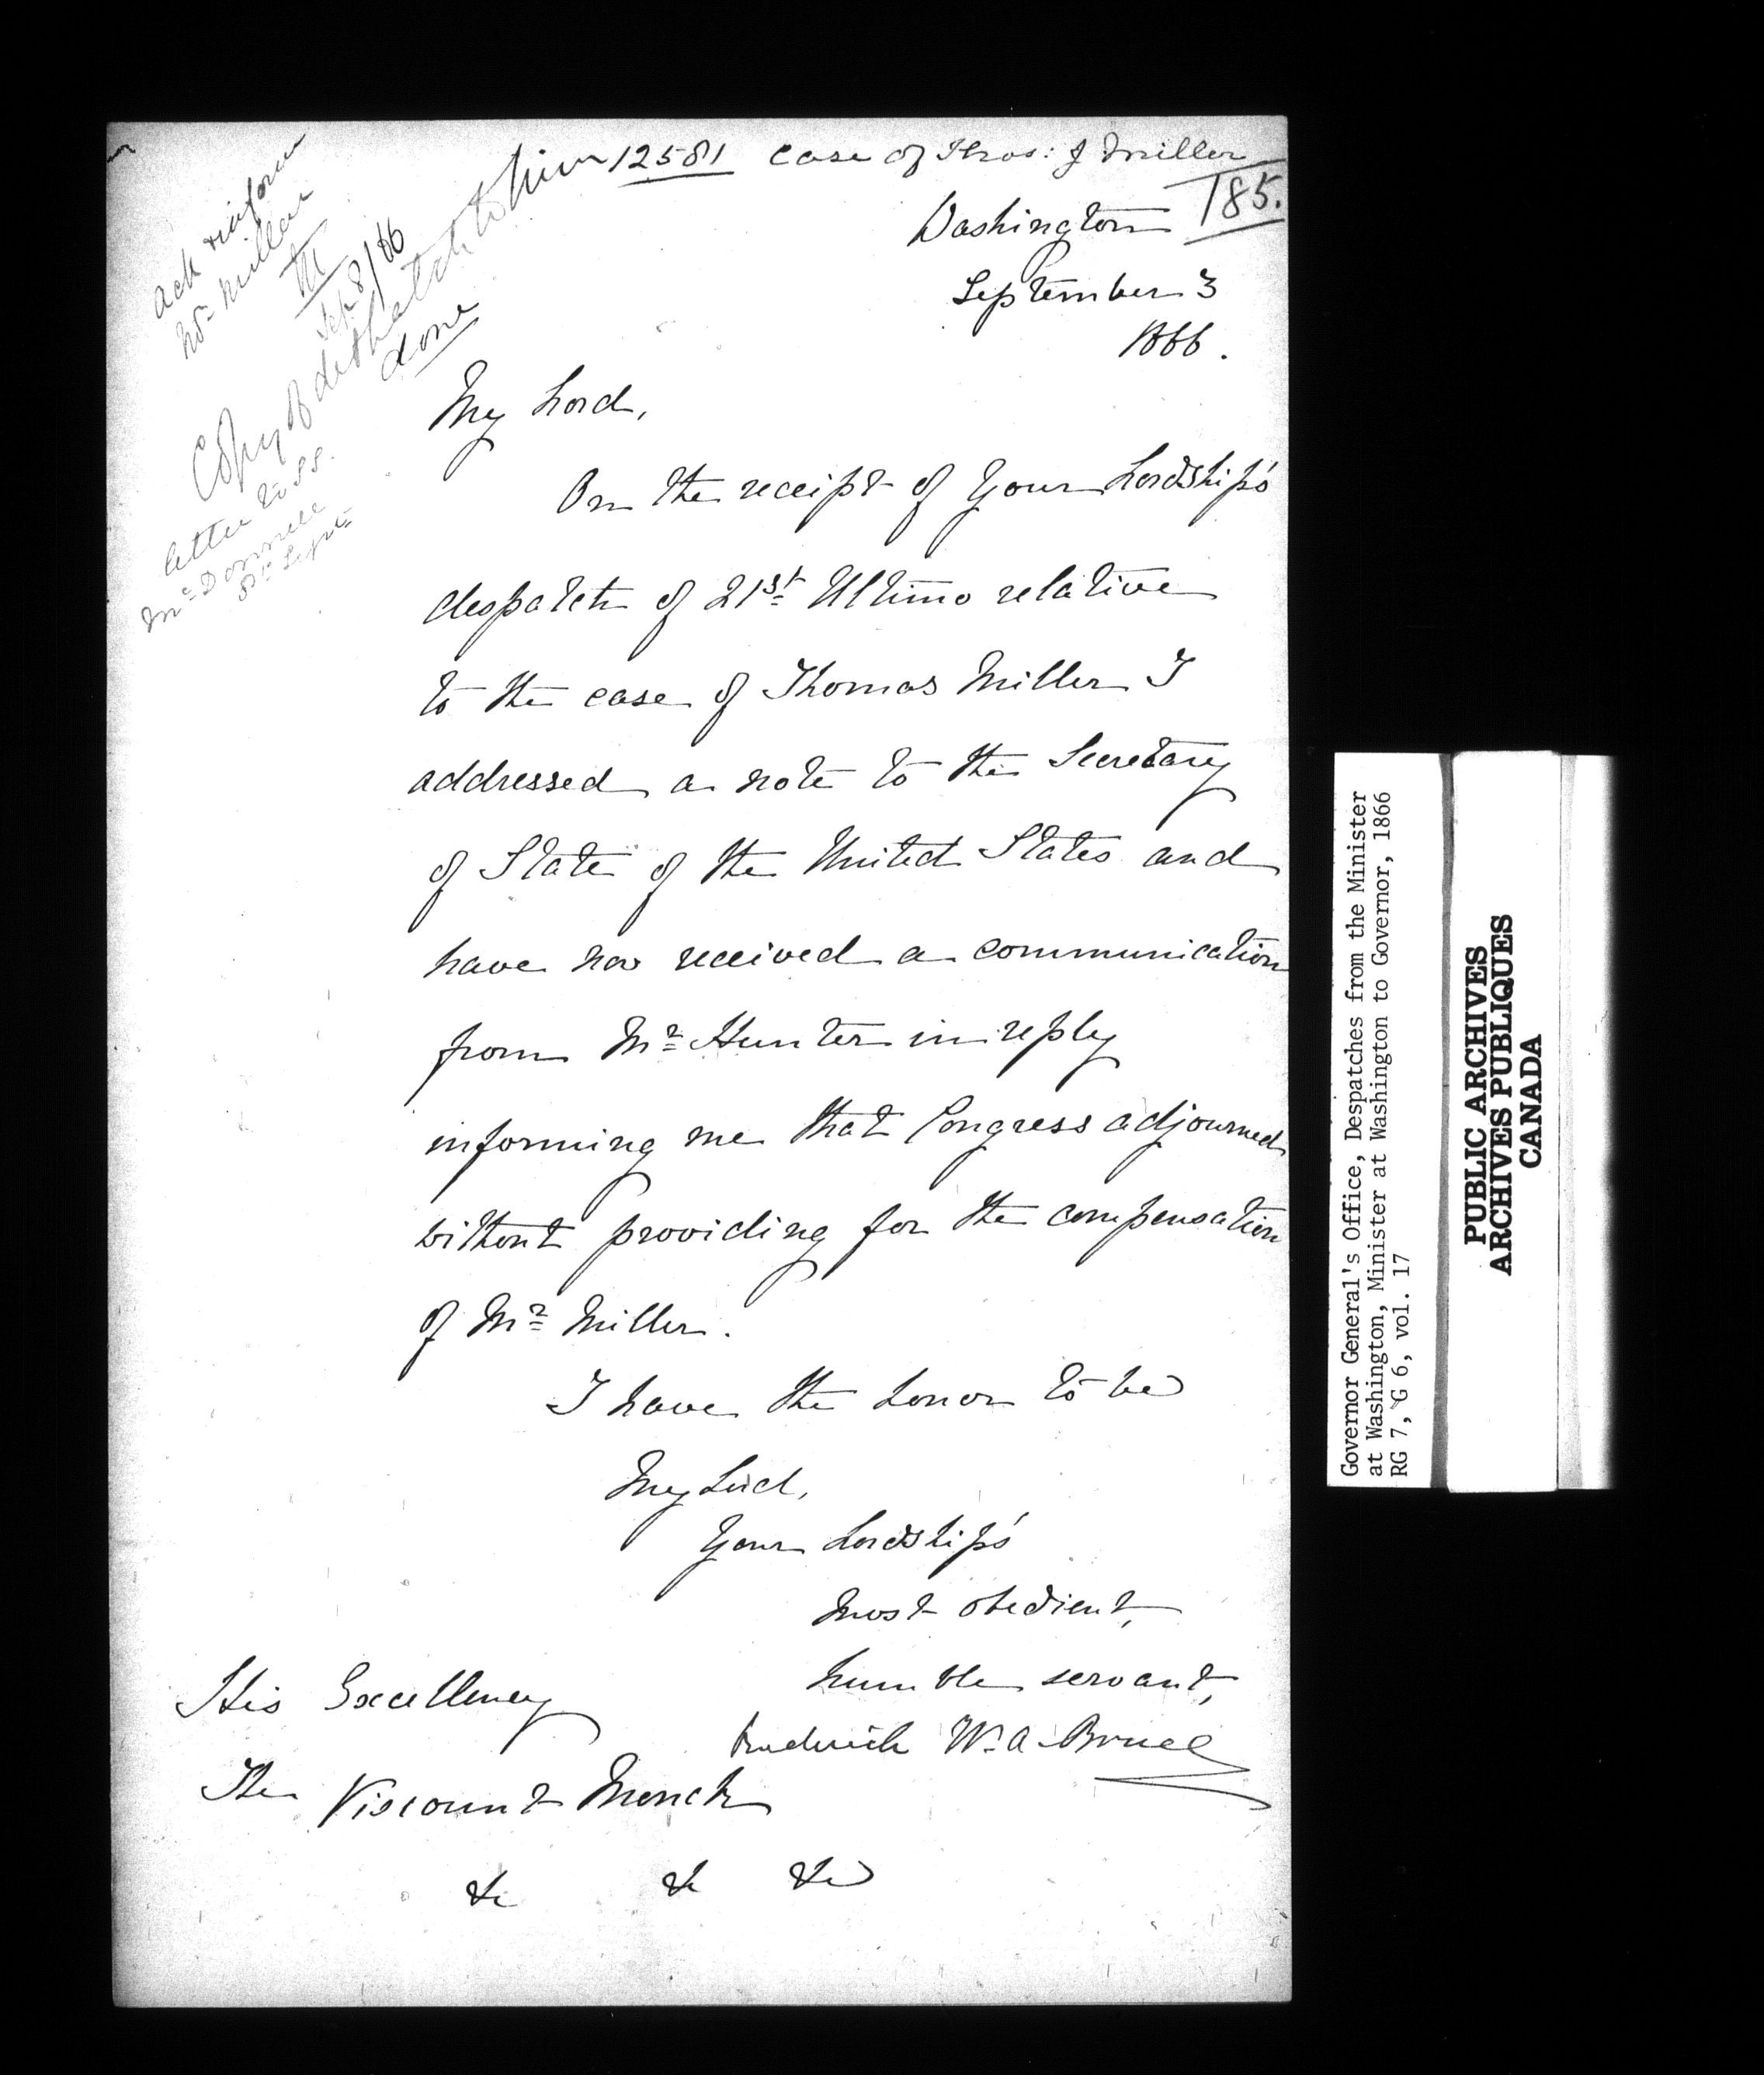 12581 Case of Thos: J Miller
185.
Washington
September 3
1866.
Ack & inform
Mr Miller
M
Sep 8/66
Copy of despatch to him
done
letter to SS.
McDonnell
8th Septr
My Lord,
On the receipt of Your Lordship's
despatch of 21st Ultimo relative
to the case of Thomas Miller I
addressed a note to the Secretary
of State of the United States and
have now received a communication
from Mr Hunter in reply
informing me that Congress adjourned
without providing for the compensation
of Mr Miller.
I have the honor to be
My Lord,
Your Lordship's
most obedient,
humble servant,
Frederick W. A. Bruce
His Excellency
The Viscount Monck
&c &c &c
Governor General's Office, Despatches from the Minister
at Washington, Minister at Washington to Governor, 1866
RG 7, G 6, vol. 17
PUBLIC ARCHIVES
ARCHIVES PUBLIQUES
CANADA